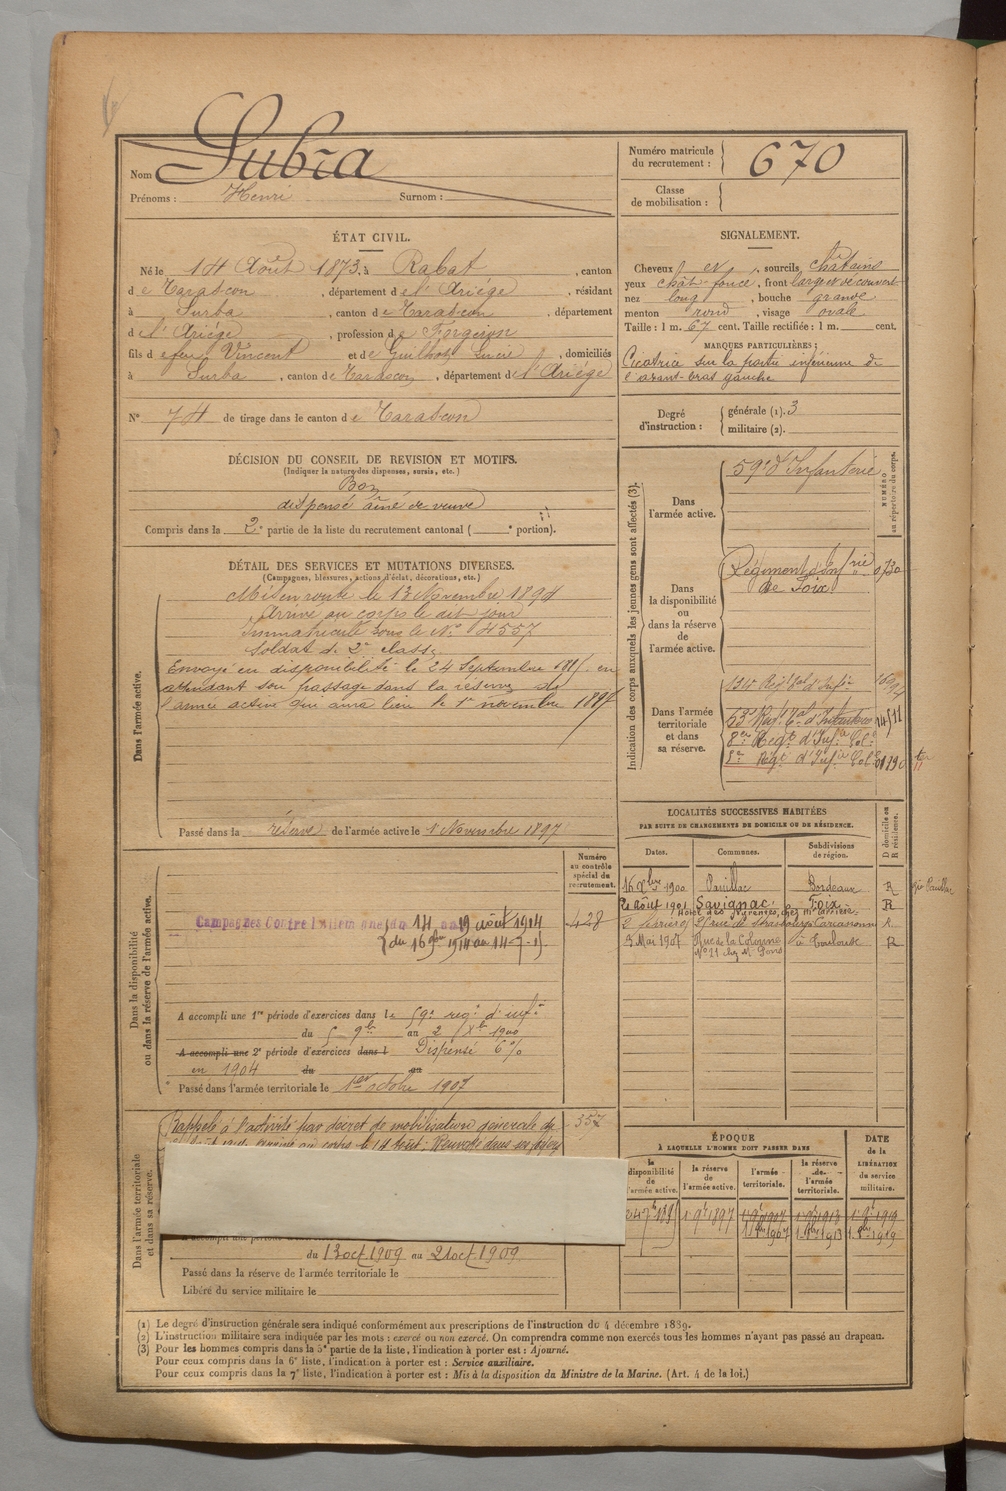 Nom Subra
Prénoms : Henri Surnom :
Numéro matricule du recrutement : 670
Classe de mobilisation :
ÉTAT CIVIL.
Né le 14 Août 1873, à Rabat, canton
de Tarascon, département de l'Ariège, résidant
à Surba, canton de Tarascon, département
de l'Ariége, profession de Forgeron
fils de feu Vincent et de Guilhot Lucie, domiciliés
à Surba, canton de Tarascon, département de l'Ariège
N° 74 de tirage dans le canton de Tarascon
SIGNALEMENT.
Cheveux et, sourcils châtains
yeux chât-foncé, front large et découvert
nez long, bouche grande
menton rond, visage ovale
Taille : 1 m. 67 cent. Taille rectifiée : 1 m. cent.
MARQUES PARTICULIÈRES :
Cicatrice sur la partie inférieure de
l'avant-bras gauche
Degré d'instruction : générale (1). 3
militaire (2).
DÉCISION DU CONSEIL DE REVISION ET MOTIFS.
(Indiquer la nature des dispenses, sursis, etc.)
Bon
dispensé aîné de veuve
Compris dans la 2e partie de la liste du recrutement cantonal ( e portion).
DÉTAIL DES SERVICES ET MUTATIONS DIVERSES.
(Campagnes, blessures, actions d'éclat, décorations, etc.)
Dans l'armée active.
Mis en route le 13 Novembre 1894
Arrivé au corps le dit jour
Immatriculé sous le N° 4557
Soldat de 2e classe
Envoyé en disponibilité le 24 Septembre 1895 en
attendant son passage dans la réserve de
l'armée active qui aura lieu le 1er novembre 1897
Passé dans la réserve de l'armée active le 1 Novembre 1897
Indication des corps auxquels les jeunes gens sont affectés (3).
NUMÉRO au répertoire du corps.
Dans l'armée active.
59e d'Infanterie
Dans la disponibilité ou dans la réserve de l'armée active.
Régiment d'infrie 0730
de Foix
Dans l'armée territoriale et dans sa réserve.
134e Régt
d'Infanterie
8e Regt d'Infie Colle
5e Régt d'Infie Colle
LOCALITÉS SUCCESSIVES HABITÉES
PAR SUITE DE CHANGEMENTS DE DOMICILE OU DE RÉSIDENCE.
Dates. Communes. Subdivisions de région. D domicile ou R résidence.
16 Xbre 1900 Pauillac Bordeaux R
2 Août 1901 Savignac Foix R
Hotel des Pyrénées, chez Mr
rue de Strasbourg Carcassonne R
3 Mai 1907 Rue de la Colonne Toulouse R
N° 11 chez Mr Pons
Dans la disponibilité ou dans la réserve de l'armée active.
Numéro au contrôle spécial du recrutement.
428
Campagnes Contre l'Allemagne du 14 au 19 août 1914
du 16 9bre 1914 au
A accompli une 1re période d'exercices dans le 59e régt d'infie
du 5 9bre au 2 Xbre 1900
A accompli une 2e période d'exercices dans l Dispensé 6%
en 1904 du au
Passé dans l'armée territoriale le 1er octobre 1907
Dans l'armée territoriale et dans sa réserve.
Rappelé à l'activité par décret de mobilisation générale du
arrivé au corps le 14 août. Renvoyé dans ses foyers
357
du 13 oct 1909 au 21 oct 1909
Passé dans la réserve de l'armée territoriale le
Libéré du service militaire le
ÉPOQUE
À LAQUELLE L'HOMME DOIT PASSER DANS
la disponibilité de l'armée active.
la réserve de l'armée active.
l'armée territoriale.
la réserve de l'armée territoriale.
DATE de la LIBÉRATION du service militaire.
1 9e 1897 1 9e 1907 1 9e 1913 1 9e 1919
1 8bre 1907 1 8bre 1913 1 8bre 1919
(1) Le degré d'instruction générale sera indiqué conformément aux prescriptions de l'instruction du 4 décembre 1889.
(2) L'instruction militaire sera indiquée par les mots : exercé ou non exercé. On comprendra comme non exercés tous les hommes n'ayant pas passé au drapeau.
(3) Pour les hommes compris dans la 5e partie de la liste, l'indication à porter est : Ajourné.
Pour ceux compris dans la 6e liste, l'indication à porter est : Service auxiliaire.
Pour ceux compris dans la 7e liste, l'indication à porter est : Mis à la disposition du Ministre de la Marine. (Art. 4 de la loi.)